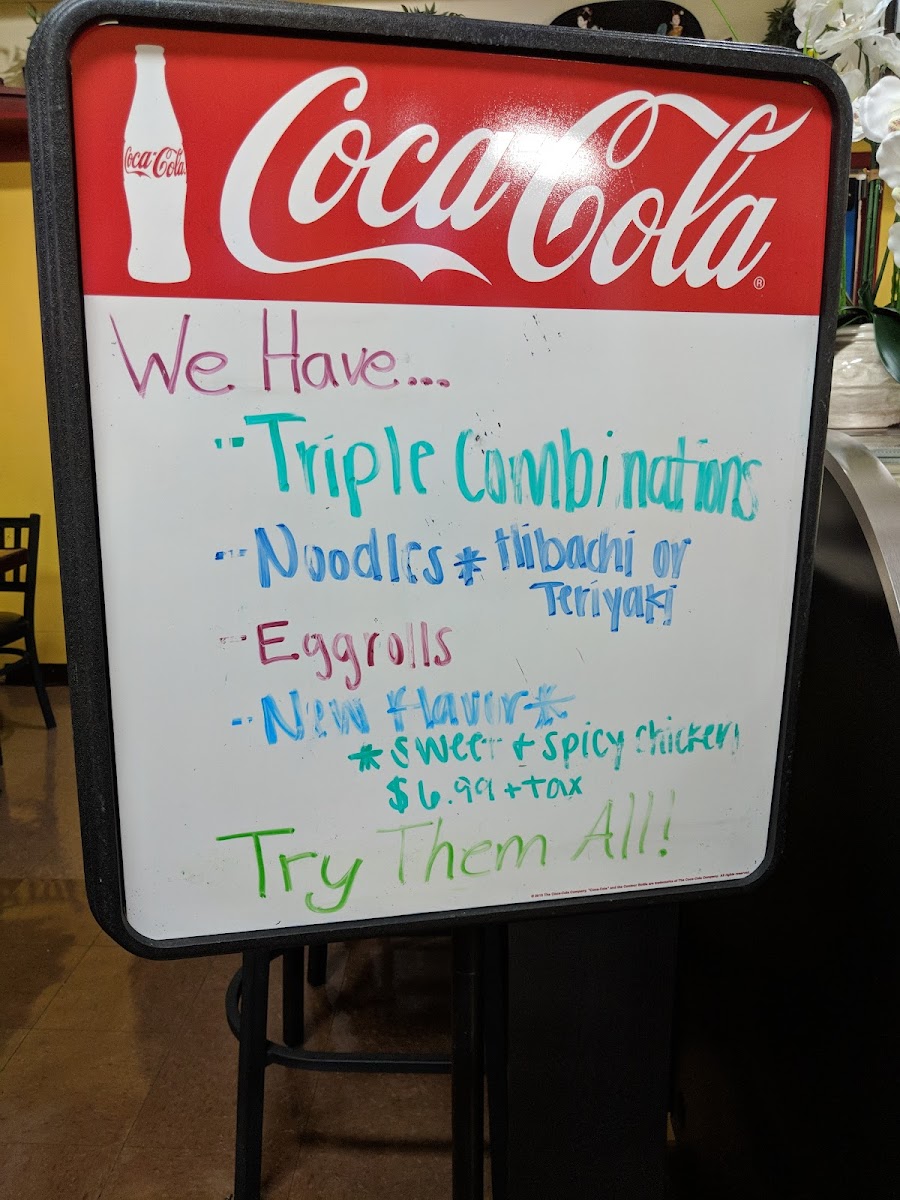 Coca-Cola
Coca-Cola ®
We Have...
-- Triple Combinations
--- Noodles * Hibachi or
Teriyaki
-- Eggrolls
-- New flavor *
* sweet + spicy chicken
$6.99 + tax
Try Them All!